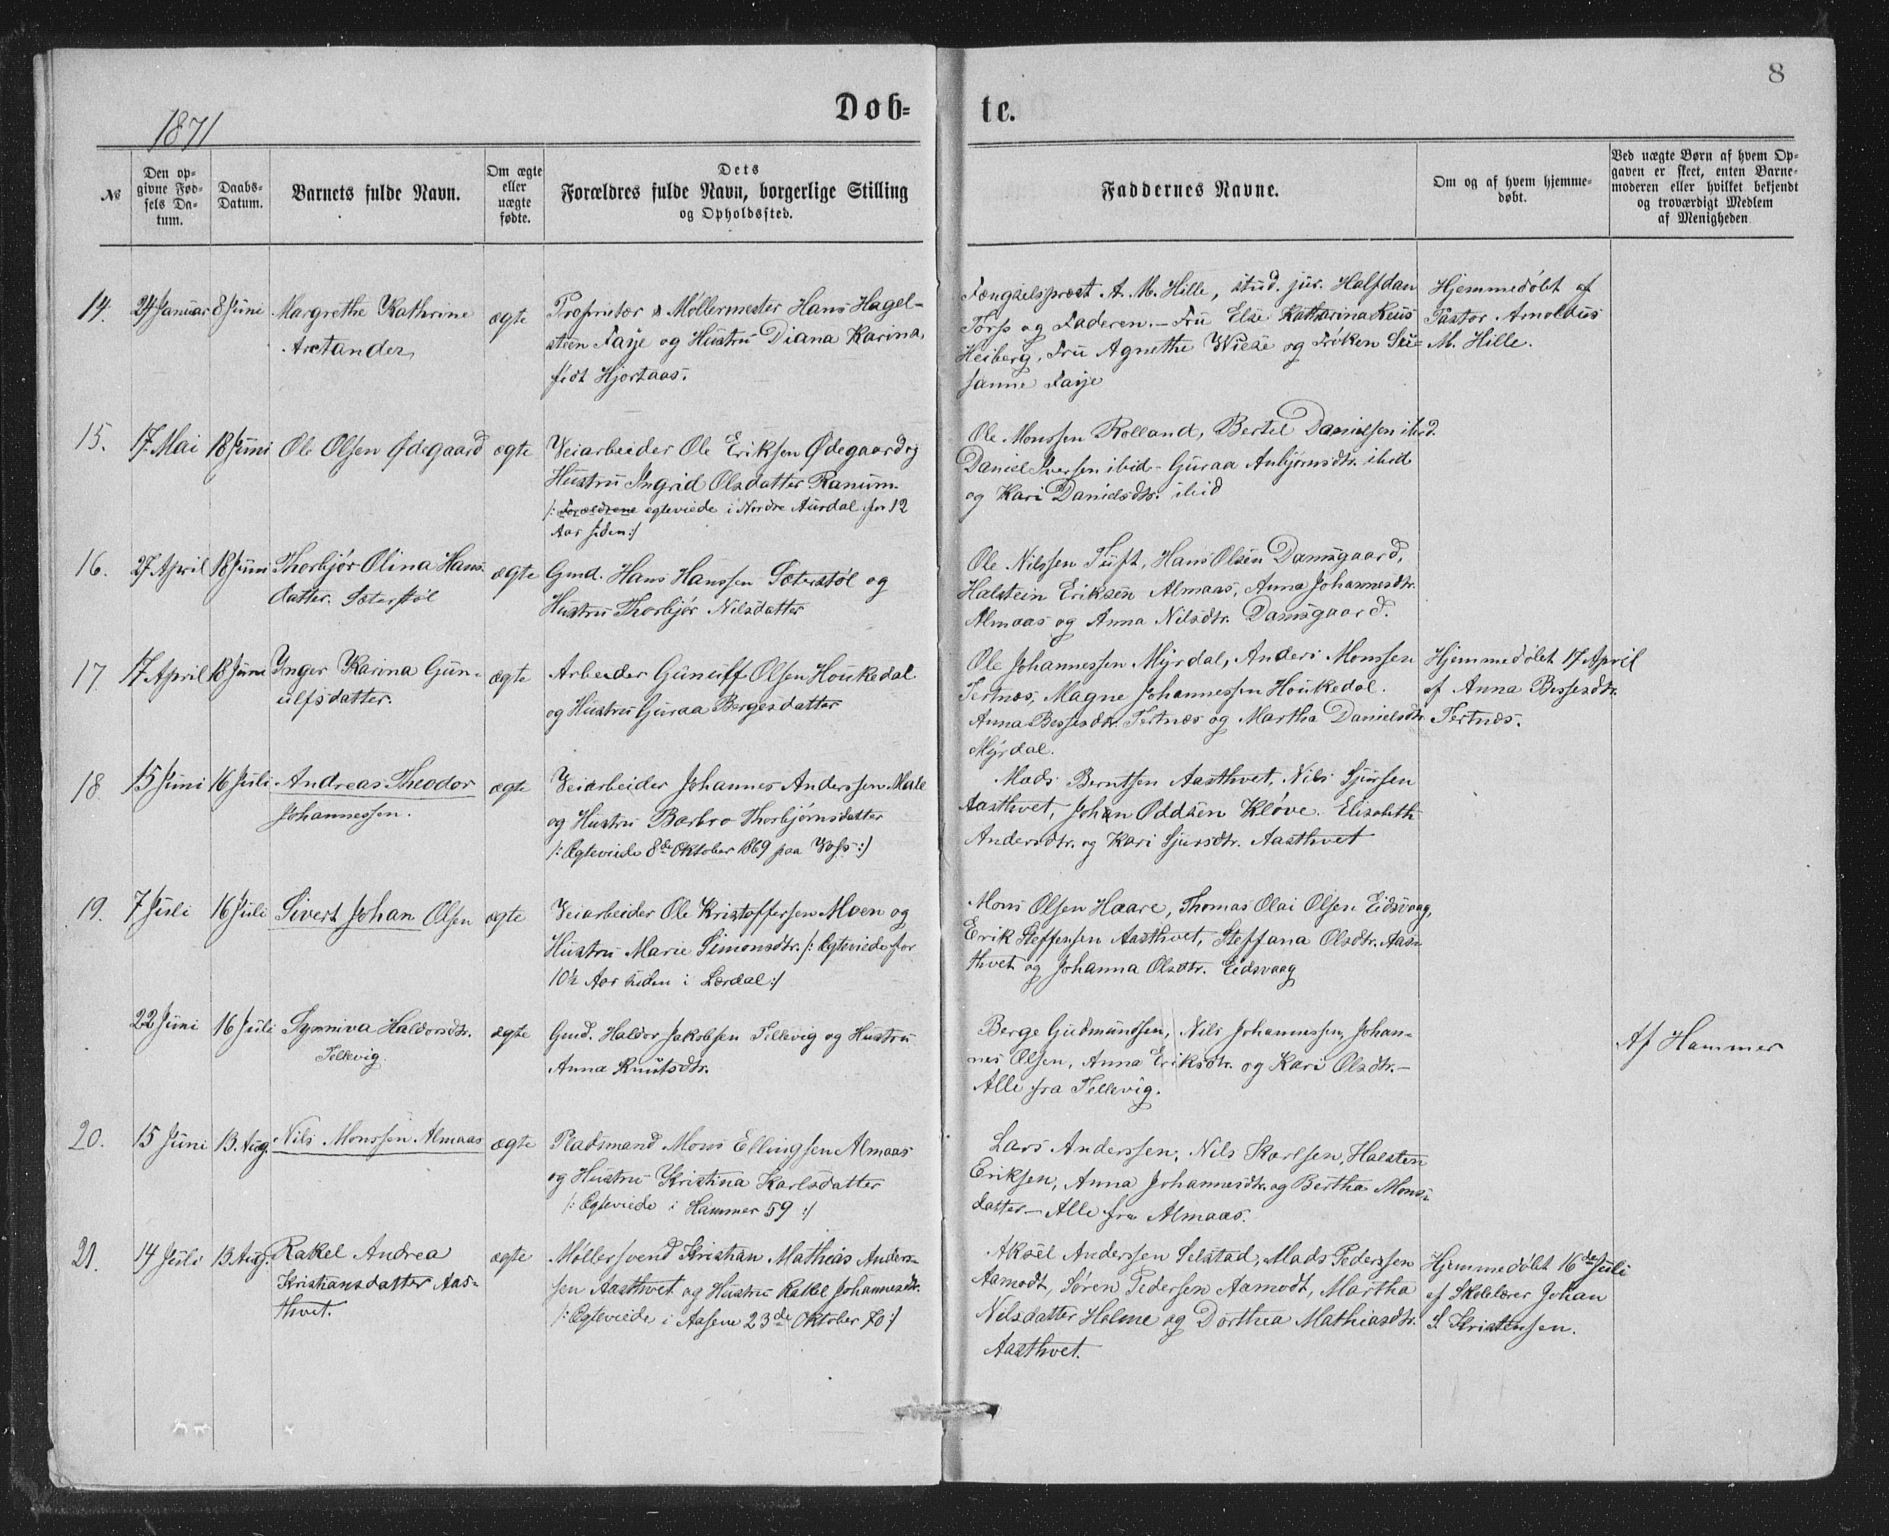 8
Døb-
te.
1871
№
Den op-
givne Fød-
sels Da-
tum.
Daabs-
Datum.
Barnets fulde Navn.
Om ægte
eller
uægte
fødte.
Dets
Forældres fulde Navn, borgerlige Stilling
og Opholdssted.
Faddernes Navne.
Om og af hvem hjemme-
døbt.
Ved uægte Børn af hvem Op-
gaven er skeet, enten Barne-
moderen eller hvilket bekjendt
og troværdigt Medlem
af Menigheden
14.
24 Januar
8 Juni
Margrethe Kathrine
Arctander
ægte
Proprietær & Møllermester Hans Hagel-
steen Faye og Hustru Diana Karina,
født Hjortaas.
Fængselspræst A. M. Hille, stud. jur. Halfdan
Torp og Faderen. - Fru Else Katharina Reus
Heiberg, Fru Agnethe Wiese og Frøken Su-
sanne Faye
Hjemmedøbt af
Pastor Arnoldus
M. Hille.
15.
17 Mai
18 Juni
Ole Olsen Ødegaard
ægte
Veiarbeider Ole Eriksen Ødegaard og
Hustru Ingrid Olsdatter Ranum.
/: Forældrene egteviede i Nordre Aurdal for 12
Aar siden :/
Ole Monssen Rolland, Bertel Danielsen ibid.
Daniel Iversen ibid - Guraa Anbjørnsdtr. ibid
og Kari Danielsdtr. ibid
16.
27 April
18 Juni
Thorbjør Olina Hans-
datter. Sæterstøl
ægte
Gmd. Hans Hanssen Sæterstøl og
Hustru Thorbjør Nilsdatter
Ole Nilssen Tuft, Hans Olsen Damsgaard,
Halstein Eriksen Almaas, Anna Johannesdtr.
Almaas og Anna Nilsdtr. Damsgaard.
17
17 April
18 Juni
Inger Karina Gun-
ulfsdatter.
ægte
Arbeider Gunulf Olsen Houkedal
og Hustru Guraa Bergesdatter
Ole Johannessen Myrdal, Anders Monssen
Tertnæs, Magne Johannessen Houkedal.
Anna Bessesdtr. Tertnæs og Martha Danielsdtr.
Myrdal.
Hjemmedøbt 17 April
af Anna Bessesdtr.
Tertnæs.
18
15 Juni
16 Juli
Andreas Theodor
Johannessen.
ægte
Veiarbeider Johannes Anderssen Male
og Hustru Barbro Thorbjørnsdatter
/: Egteviede 8de Oktober 1869 paa Voss :/
Mads Berntsen Aasthvet, Nils Sjursen
Aasthvet, Johan Oddsen Kløve. Elisabeth
Andersdtr. og Kari Sjursdtr. Aasthvet
19.
7 Juli
16 Juli
Sivert Johan Olsen
ægte
Veiarbeider Ole Kristoffersen Moen og
Hustru Marie Simonsdtr. /: Egteviede for
10½ Aar siden i Lærdal :/
Mons Olsen Haare, Thomas Olai Olsen Eidsvaag,
Erik Steffensen Aasthvet, Steffana Olsdtr. Aas-
thvet og Johanna Olsdtr. Eidsvaag
22 Juni
16 Juli
Synniva Haldorsdtr.
Tellevig.
ægte
Gmd. Haldor Jakobsen Tellevig og Hustru
Anna Knutsdtr.
Berge Gudmundsen, Nils Johannessen, Johan-
nes Olsen, Anna Eriksdtr. og Kari Olsdtr. -
Alle fra Tellevig.
Af Hammer
20.
15 Juni
13. Aug.
Nils Monssen Almaas
ægte
Pladsmand Mons Ellingsen Almaas
og Hustru Kristina Karlsdatter
/: Egteviede i Hammer 59 :/
Lars Anderssen, Nils Karlsen, Halsten
Eriksen, Anna Johannesdtr. og Bertha Mons-
datter - Alle fra Almaas.
21.
14 Juli
13 Aug.
Rakel Andrea
Kristiansdatter Aas-
thvet.
ægte
Møllersvend Kristian Mathias Anders-
sen Aasthvet og Hustru Rakel Johannesdtr.
/: Egteviede i Aasene 23de Oktober 70 :/
Aksel Anderssen Selstad, Mads Pederssen
Aamodt, Søren Pedersen Aamodt, Martha
Nilsdatter Holme og Dorthea Mathiasdtr.
Aasthvet.
Hjemmedøbt 16de Juli
af Skolelærer Johan
S. Kristensen.